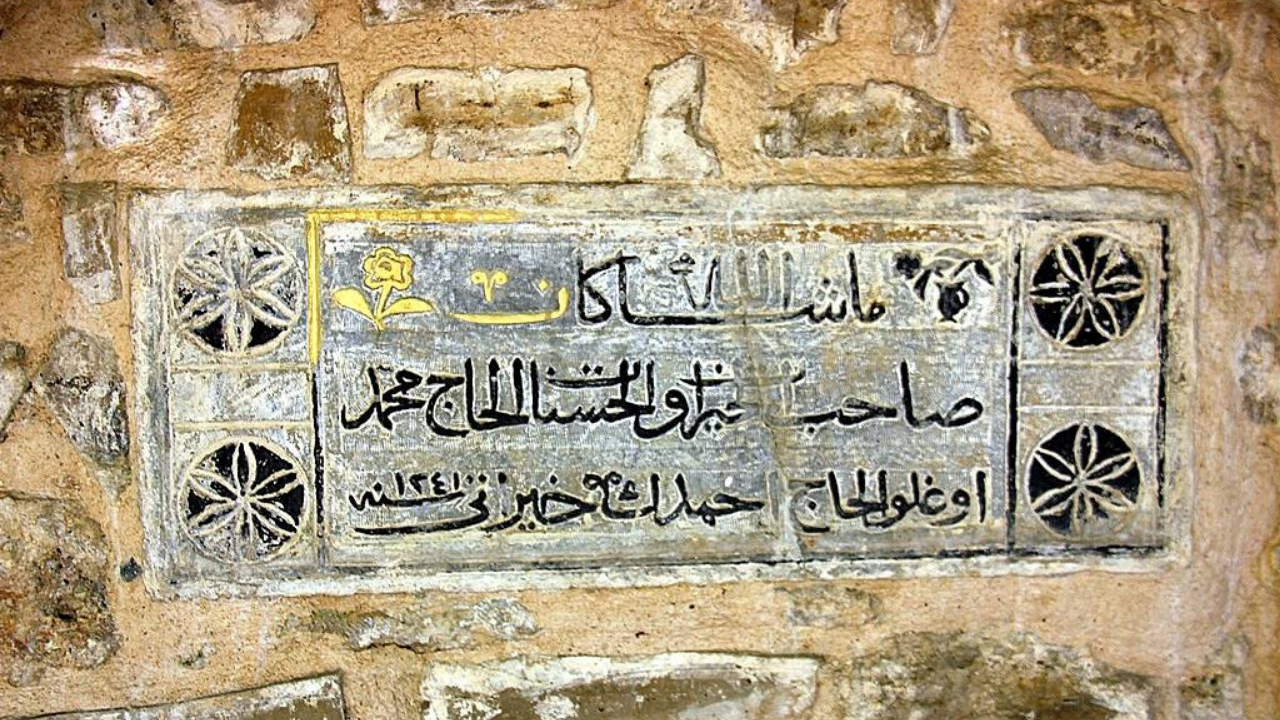 ماشاالله كان ٢
صاحب خيرا والحسنات الحاج محمد
اوغلو الحاج احمد خيرتى سنه ١٢٤١